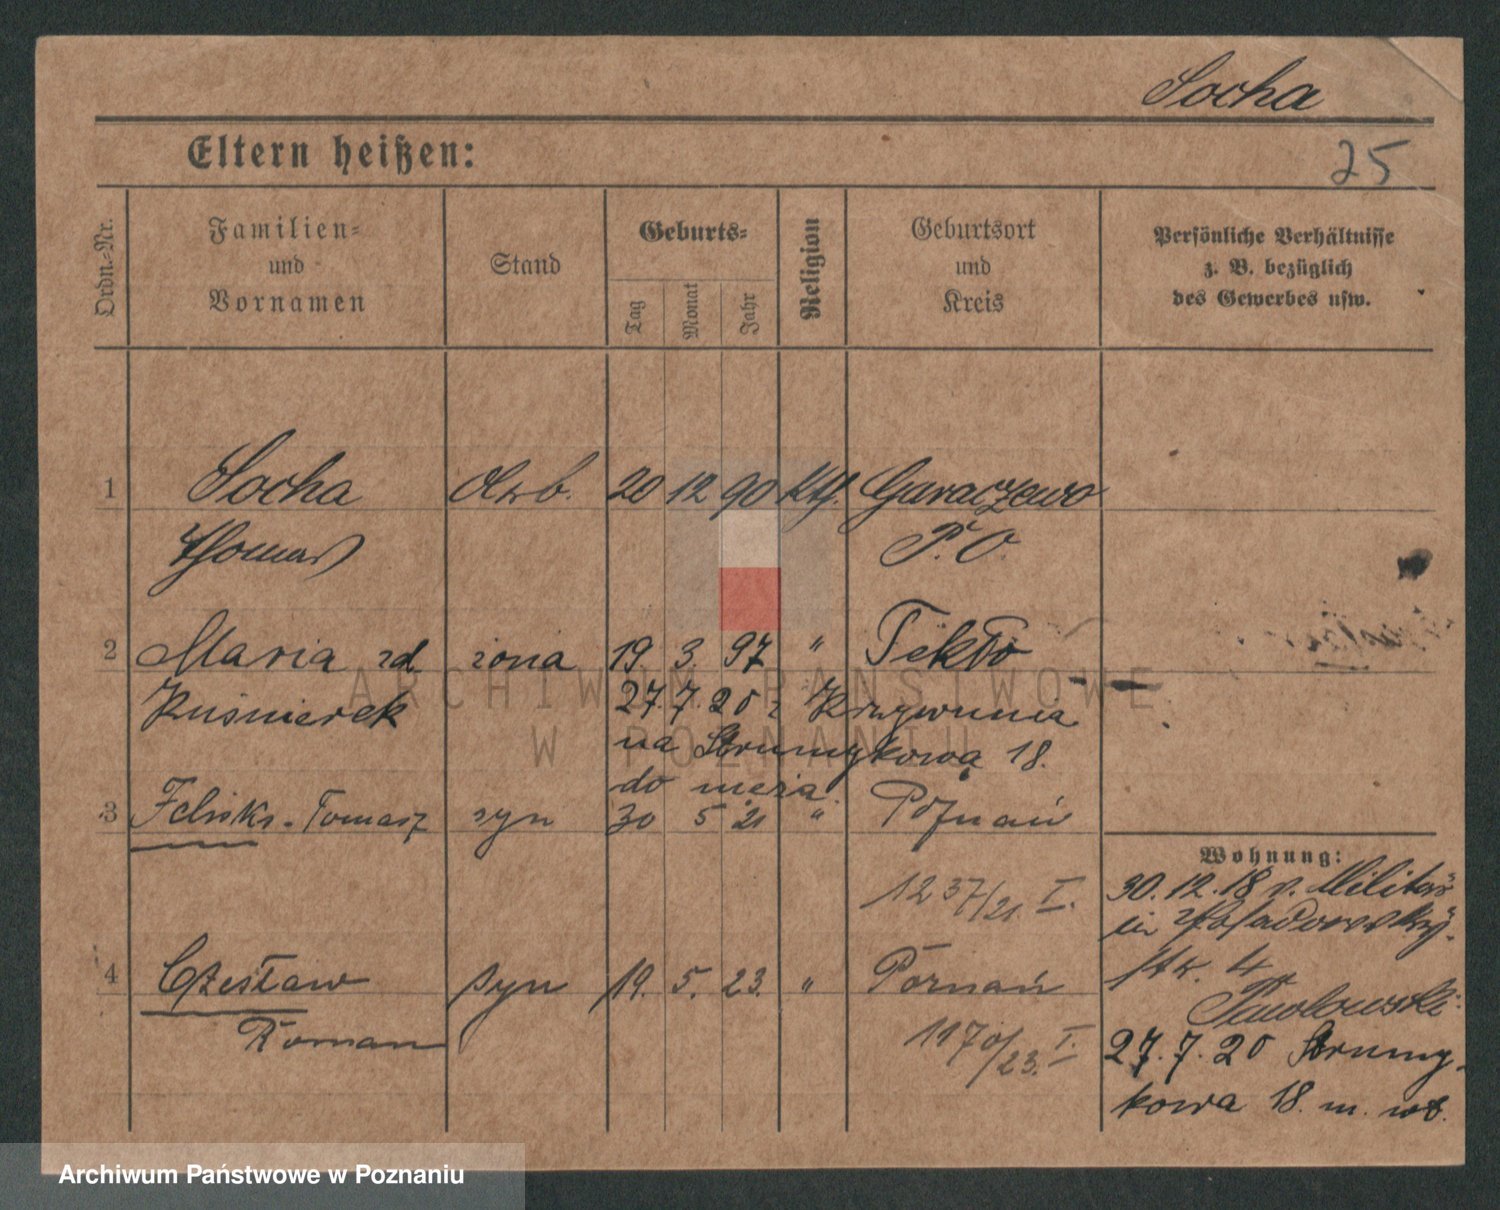 Socha
Eltern heißen:
25
Ordn.-Nr.
Familien-
und
Vornamen
Stand
Geburts-
Tag
Monat
Jahr
Religion
Geburtsort
und
Kreis
Persönliche Verhältnisse
z. B. bezüglich
des Gewerbes usw.
1 Socha 20 12 90 kth. Garaczewo
Thomas P. O.
2 Maria zd żona 19 3. 97 "
Kuśnierek 27. 7. 20 z Krzywinia
na Strumykową 18.
do męża.
3 Feliks-Tomasz syn 30 5 21 " Poznań
1237/21. I.
4 Czesław syn 19. 5. 23. " Poznań
Roman 1970/23. I.
Wohnung:
30.12.18 v. Militär
in
4
27.7.20 Strumy-
kowa 18. m.
ARCHIWUM PAŃSTWOWE
W POZNANIU
Archiwum Państwowe w Poznaniu